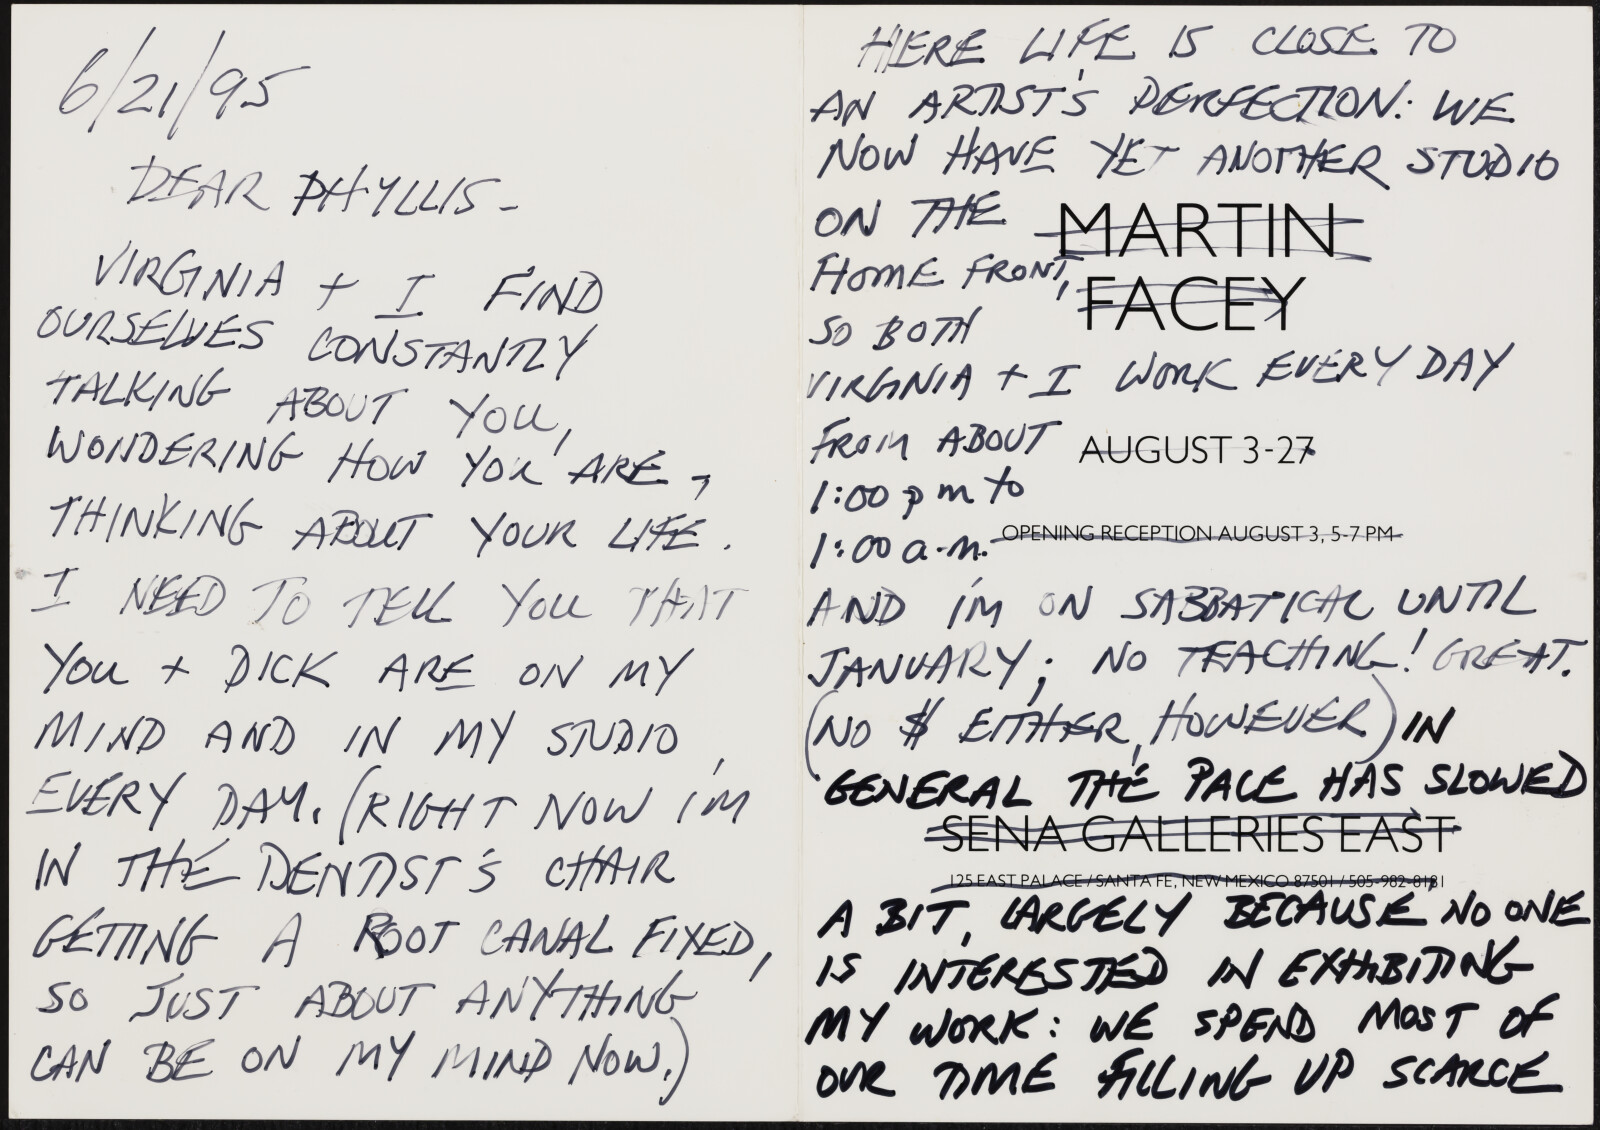 6/21/95
DEAR PHYLLIS-
VIRGINIA + I FIND
OURSELVES CONSTANTLY
TALKING ABOUT YOU,
WONDERING HOW YOU ARE,
THINKING ABOUT YOUR LIFE.
I NEED TO TELL YOU THAT
YOU + DICK ARE ON MY
MIND AND IN MY STUDIO,
EVERY DAY. (RIGHT NOW I'M
IN THE DENTIST'S CHAIR
GETTING A ROOT CANAL FIXED,
SO JUST ABOUT ANYTHING
CAN BE ON MY MIND NOW.)
HERE LIFE IS CLOSE TO
AN ARTIST'S PERFECTION: WE
NOW HAVE YET ANOTHER STUDIO
ON THE
MARTIN
HOME FRONT,
FACEY
SO BOTH
VIRGINIA + I WORK EVERY DAY
FROM ABOUT
AUGUST 3-27
1:00 pm to
1:00 a.m.
OPENING RECEPTION AUGUST 3, 5-7 PM
AND I'M ON SABBATICAL UNTIL
JANUARY; NO TEACHING! GREAT.
(NO $ EITHER, HOWEVER) IN
GENERAL THE PACE HAS SLOWED
SENA GALLERIES EAST
125 EAST PALACE / SANTA FE, NEW MEXICO 87501 / 505-982-8181
A BIT, LARGELY BECAUSE NO ONE
IS INTERESTED IN EXHIBITING
MY WORK: WE SPEND MOST OF
OUR TIME FILLING UP SCARCE